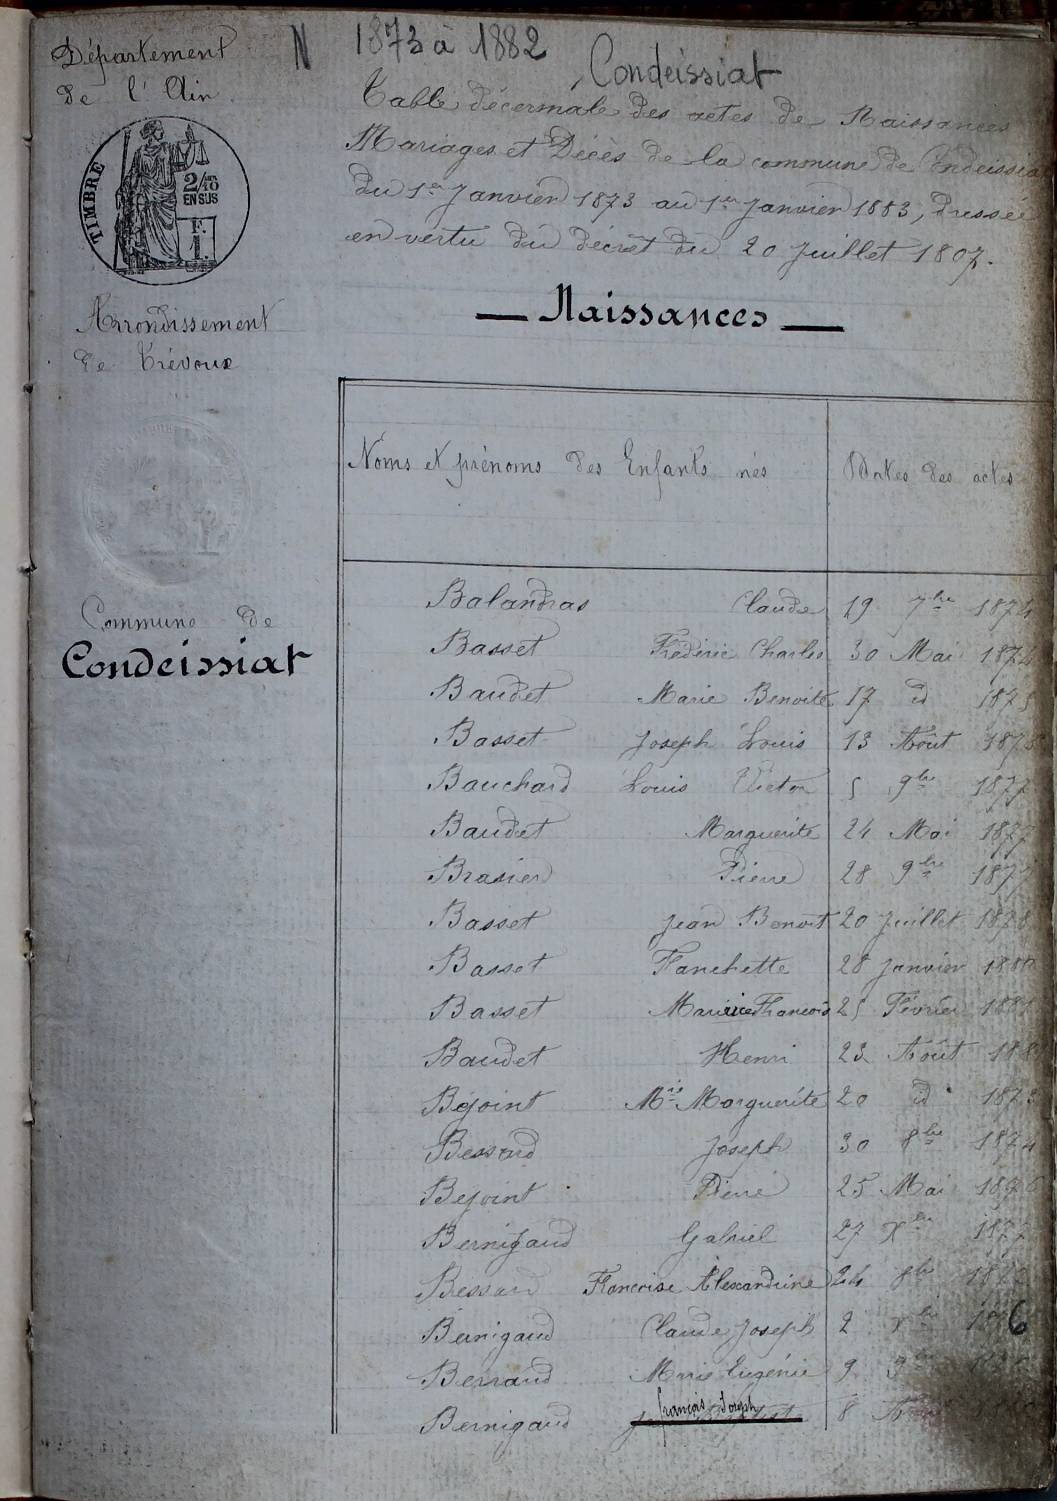 Département
de l'Ain
N 1873 à 1882
Condeissiat
Table décennale des actes de Naissances
Mariages et Décès de la commune de Condeissiat
du 1er Janvier 1873 au 1er Janvier 1883, dressée
en vertu du décret du 20 Juillet 1807.
TIMBRE
2/10
EN SUS
F.
1.
Arrondissement
de Trévoux
— Naissances —
Commune de
Condeissiat
Noms et prénoms des Enfants nés Dates des actes
Balandras Claude 19 7bre 1874
Basset Frédéric Charles 30 Mai 1874
Baudet Marie Benoite 17 id 1875
Basset Joseph Louis 13 Août
Bauchard Louis Victor 5 9bre 1877
Baudet Marguerite 24 Mai 1877
Brasier Pierre 28 9bre 1877
Basset Jean Benoit 20 Juillet 1878
Basset Fanchette 28 Janvier 1880
Basset Marie François 25 Février 1881
Baudet Henri 23 Août
Béjoint Mie Marguerite 20 id 1873
Bessard Joseph 30 8bre 1874
Bejoint Pierre 25 Mai 1876
Bernigaud Gabriel 27 Xbre 1877
Bessard Françoise Alexandrine 24 8bre
Bernigaud Claude Joseph 2 6
Berraud Marie Eugénie 9
Bernigaud françois Joseph 8